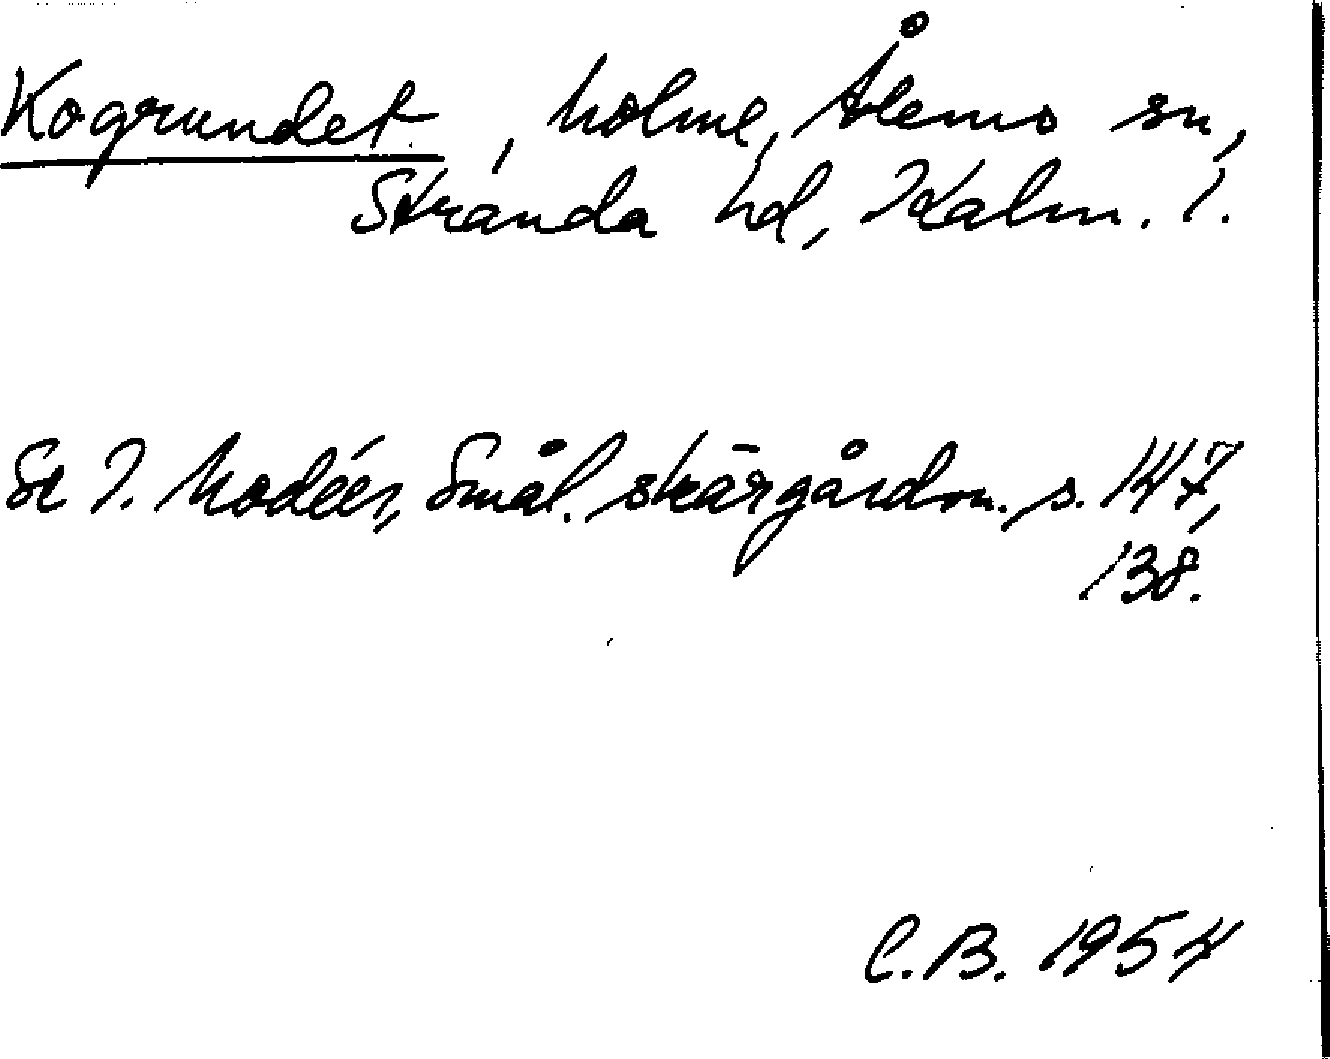 Kogrundet, holme, Ålems sn,
Stranda hd, Kalm. l.
Se I. Modéer, Smål. skärgårdsn. s. 147,
138.
C.B. 1954